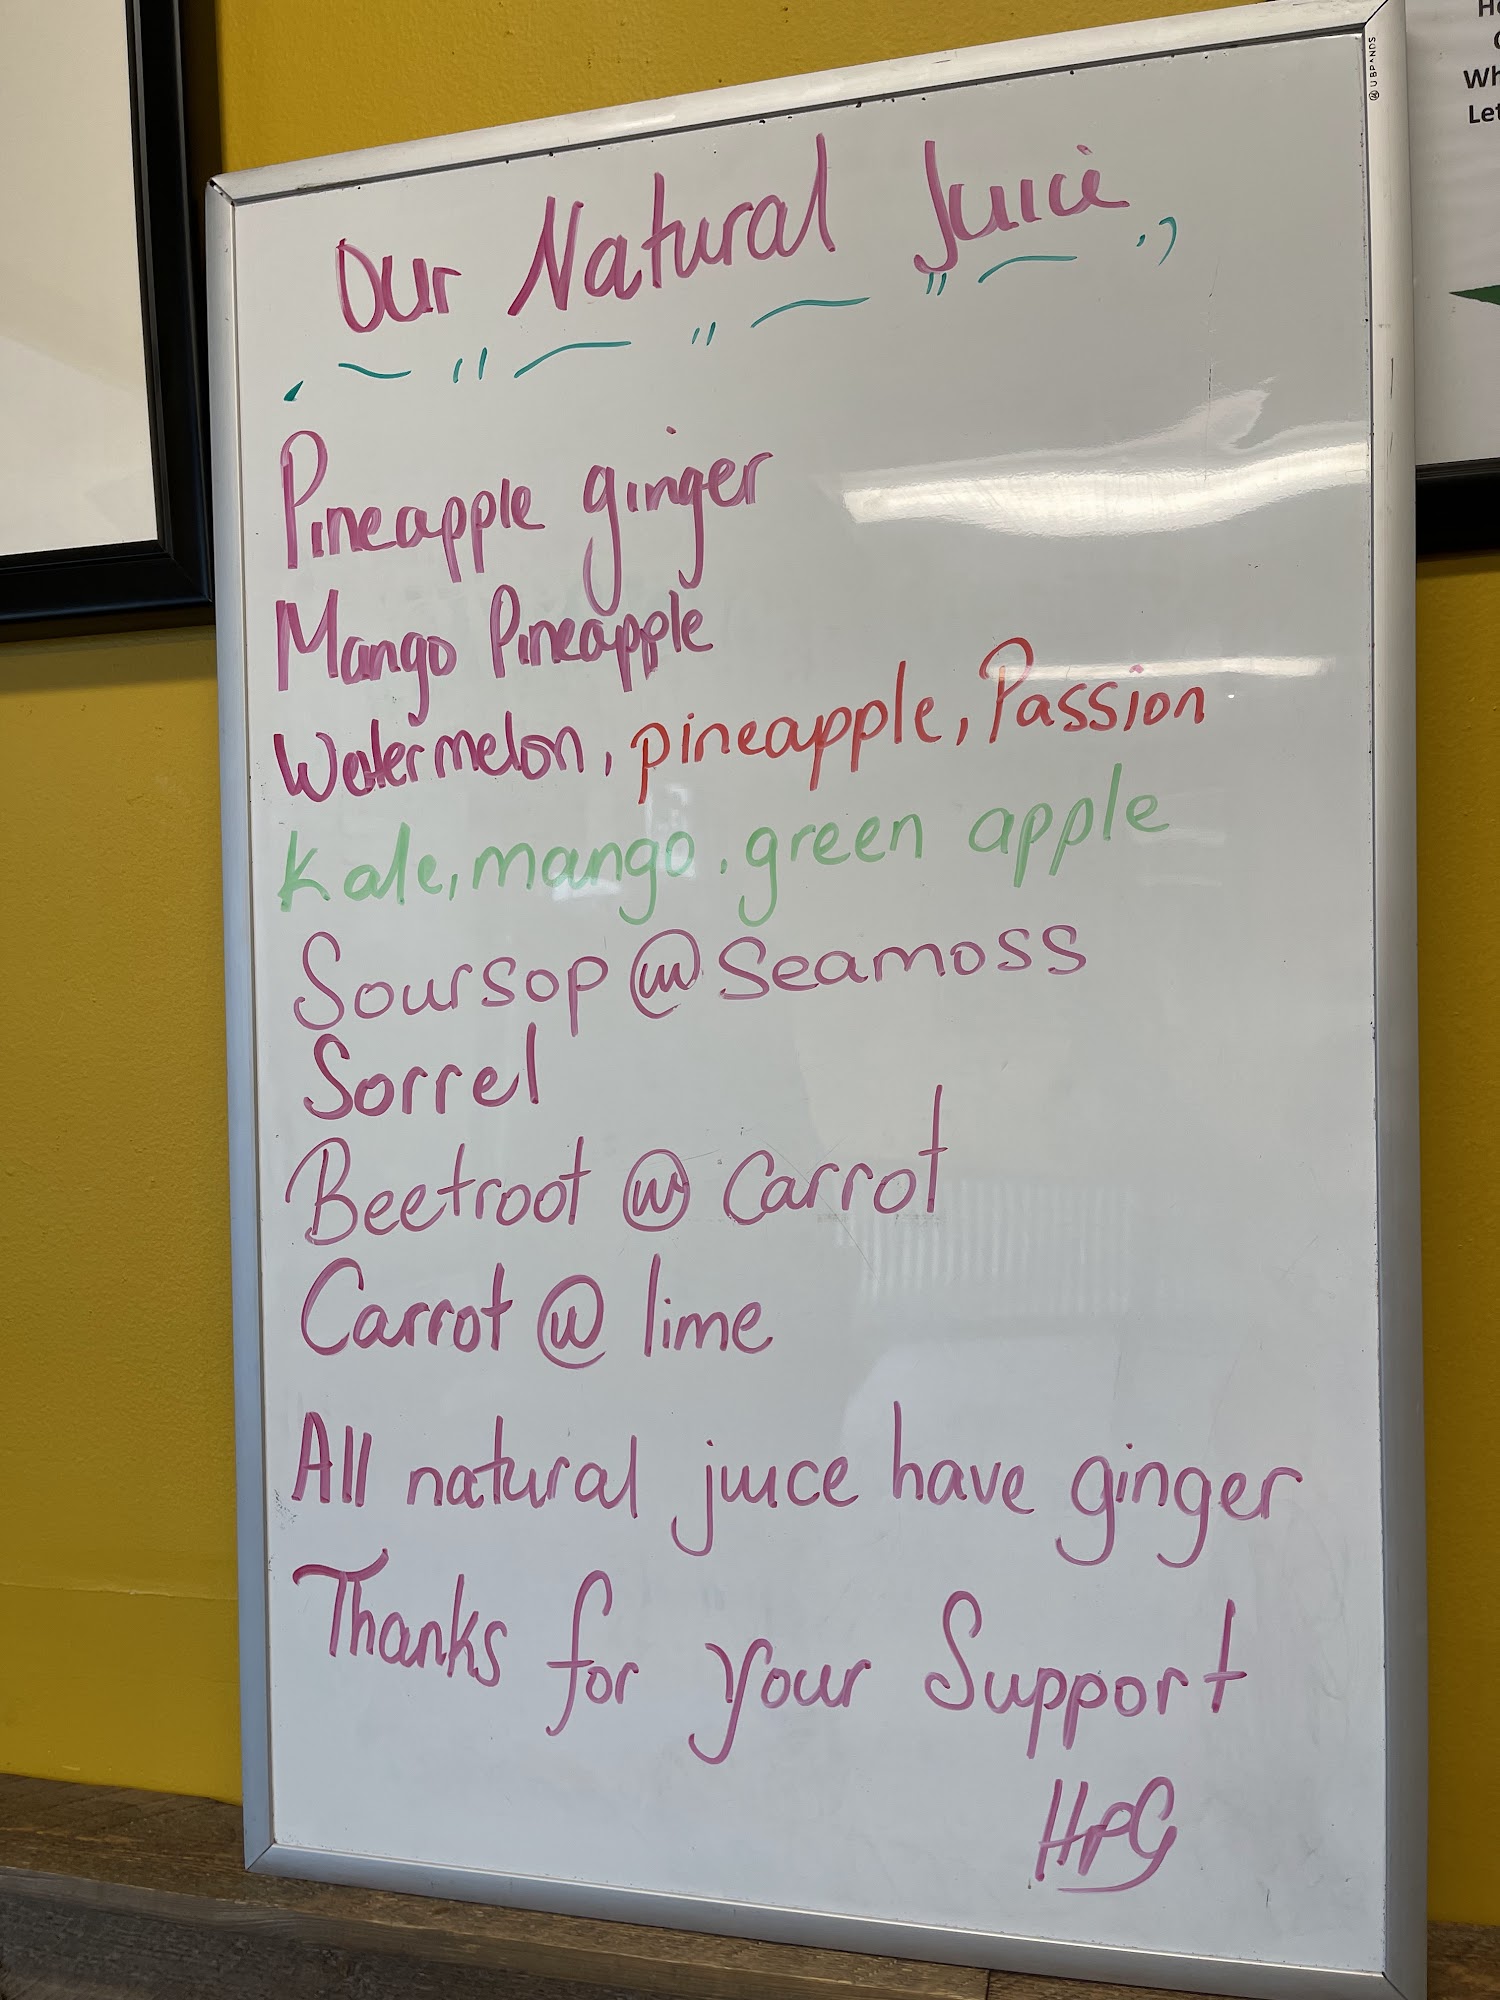 Our Natural Juice
Pineapple ginger
Mango Pineapple
Watermelon, pineapple, Passion
Kale, mango, green apple
Soursop @ Seamoss
Sorrel
Beetroot @ Carrot
Carrot @ lime
All natural juice have ginger
Thanks for your Support
HPG
U BRANDS